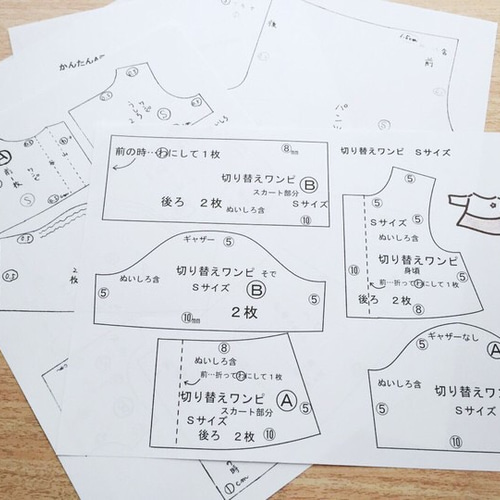 かんたん
前の時…わにして1枚
⑧mm
切り替えワンピ
スカート部分
Ⓑ
Sサイズ
後ろ 2枚 ぬいしろ含
⑩
切り替えワンピ Sサイズ
⑤
⑤
Sサイズ
⑤
ぬいしろ含
⑤
切り替えワンピ
身頃
⑩
前…折ってわにして1枚
後ろ 2枚
⑧
ギャザー
⑤
ぬいしろ含
切り替えワンピ そで
Sサイズ
Ⓑ
⑤
⑤
2枚
⑩mm
⑧
ぬいしろ含
前…折ってわにして1枚
切り替えワンピ
スカート部分
Ⓐ
Sサイズ
⑤
後ろ 2枚
⑩
ギャザーなし
⑤
ぬいしろ含
切り替えワン
⑤
Sサイズ
⑩
Ⓐ
Ⓢ
Ⓢ
1cm